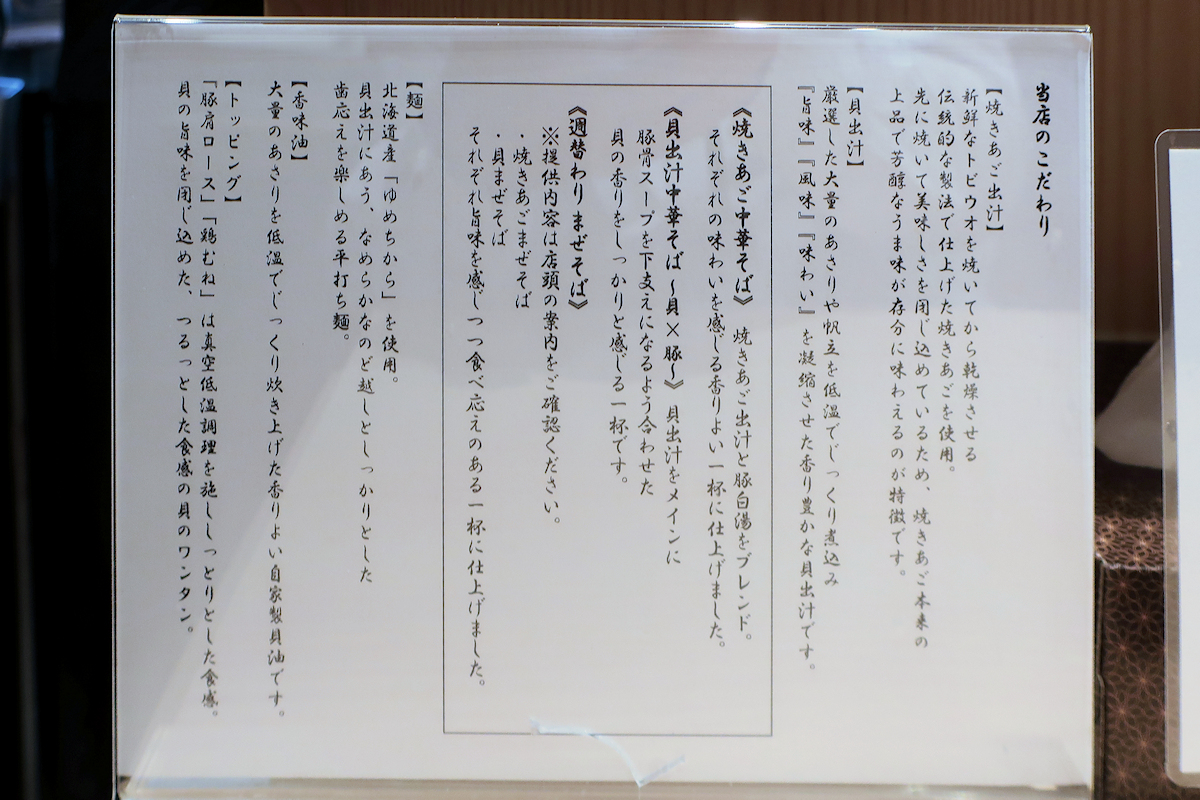 当店のこだわり
【焼きあご出汁】
新鮮なトビウオを焼いてから乾燥させる
伝統的な製法で仕上げた焼きあごを使用。
先に焼いて美味しさを閉じ込めているため、焼きあご本来の
上品で芳醇なうま味が存分に味わえるのが特徴です。
【貝出汁】
厳選した大量のあさりや帆立を低温でじっくり煮込み
『旨味』『風味』『味わい』を凝縮させた香り豊かな貝出汁です。
《焼きあご中華そば》 焼きあご出汁と豚白湯をブレンド。
それぞれの味わいを感じる香りよい一杯に仕上げました。
《貝出汁中華そば～貝×豚～》 貝出汁をメインに
豚骨スープを下支えになるよう合わせた
貝の香りをしっかりと感じる一杯です。
《週替わりまぜそば》
※提供内容は店頭の案内をご確認ください。
・焼きあごまぜそば
・貝まぜそば
それぞれ旨味を感じつつ食べ応えのある一杯に仕上げました。
【麺】
北海道産「ゆめちから」を使用。
貝出汁にあう、なめらかなのど越しとしっかりとした
歯応えを楽しめる平打ち麺。
【香味油】
大量のあさりを低温でじっくり炊き上げた香りよい自家製貝油です。
【トッピング】
「豚肩ロース」「鶏むね」は真空低温調理を施ししっとりとした食感。
貝の旨味を閉じ込めた、つるっとした食感の貝のワンタン。